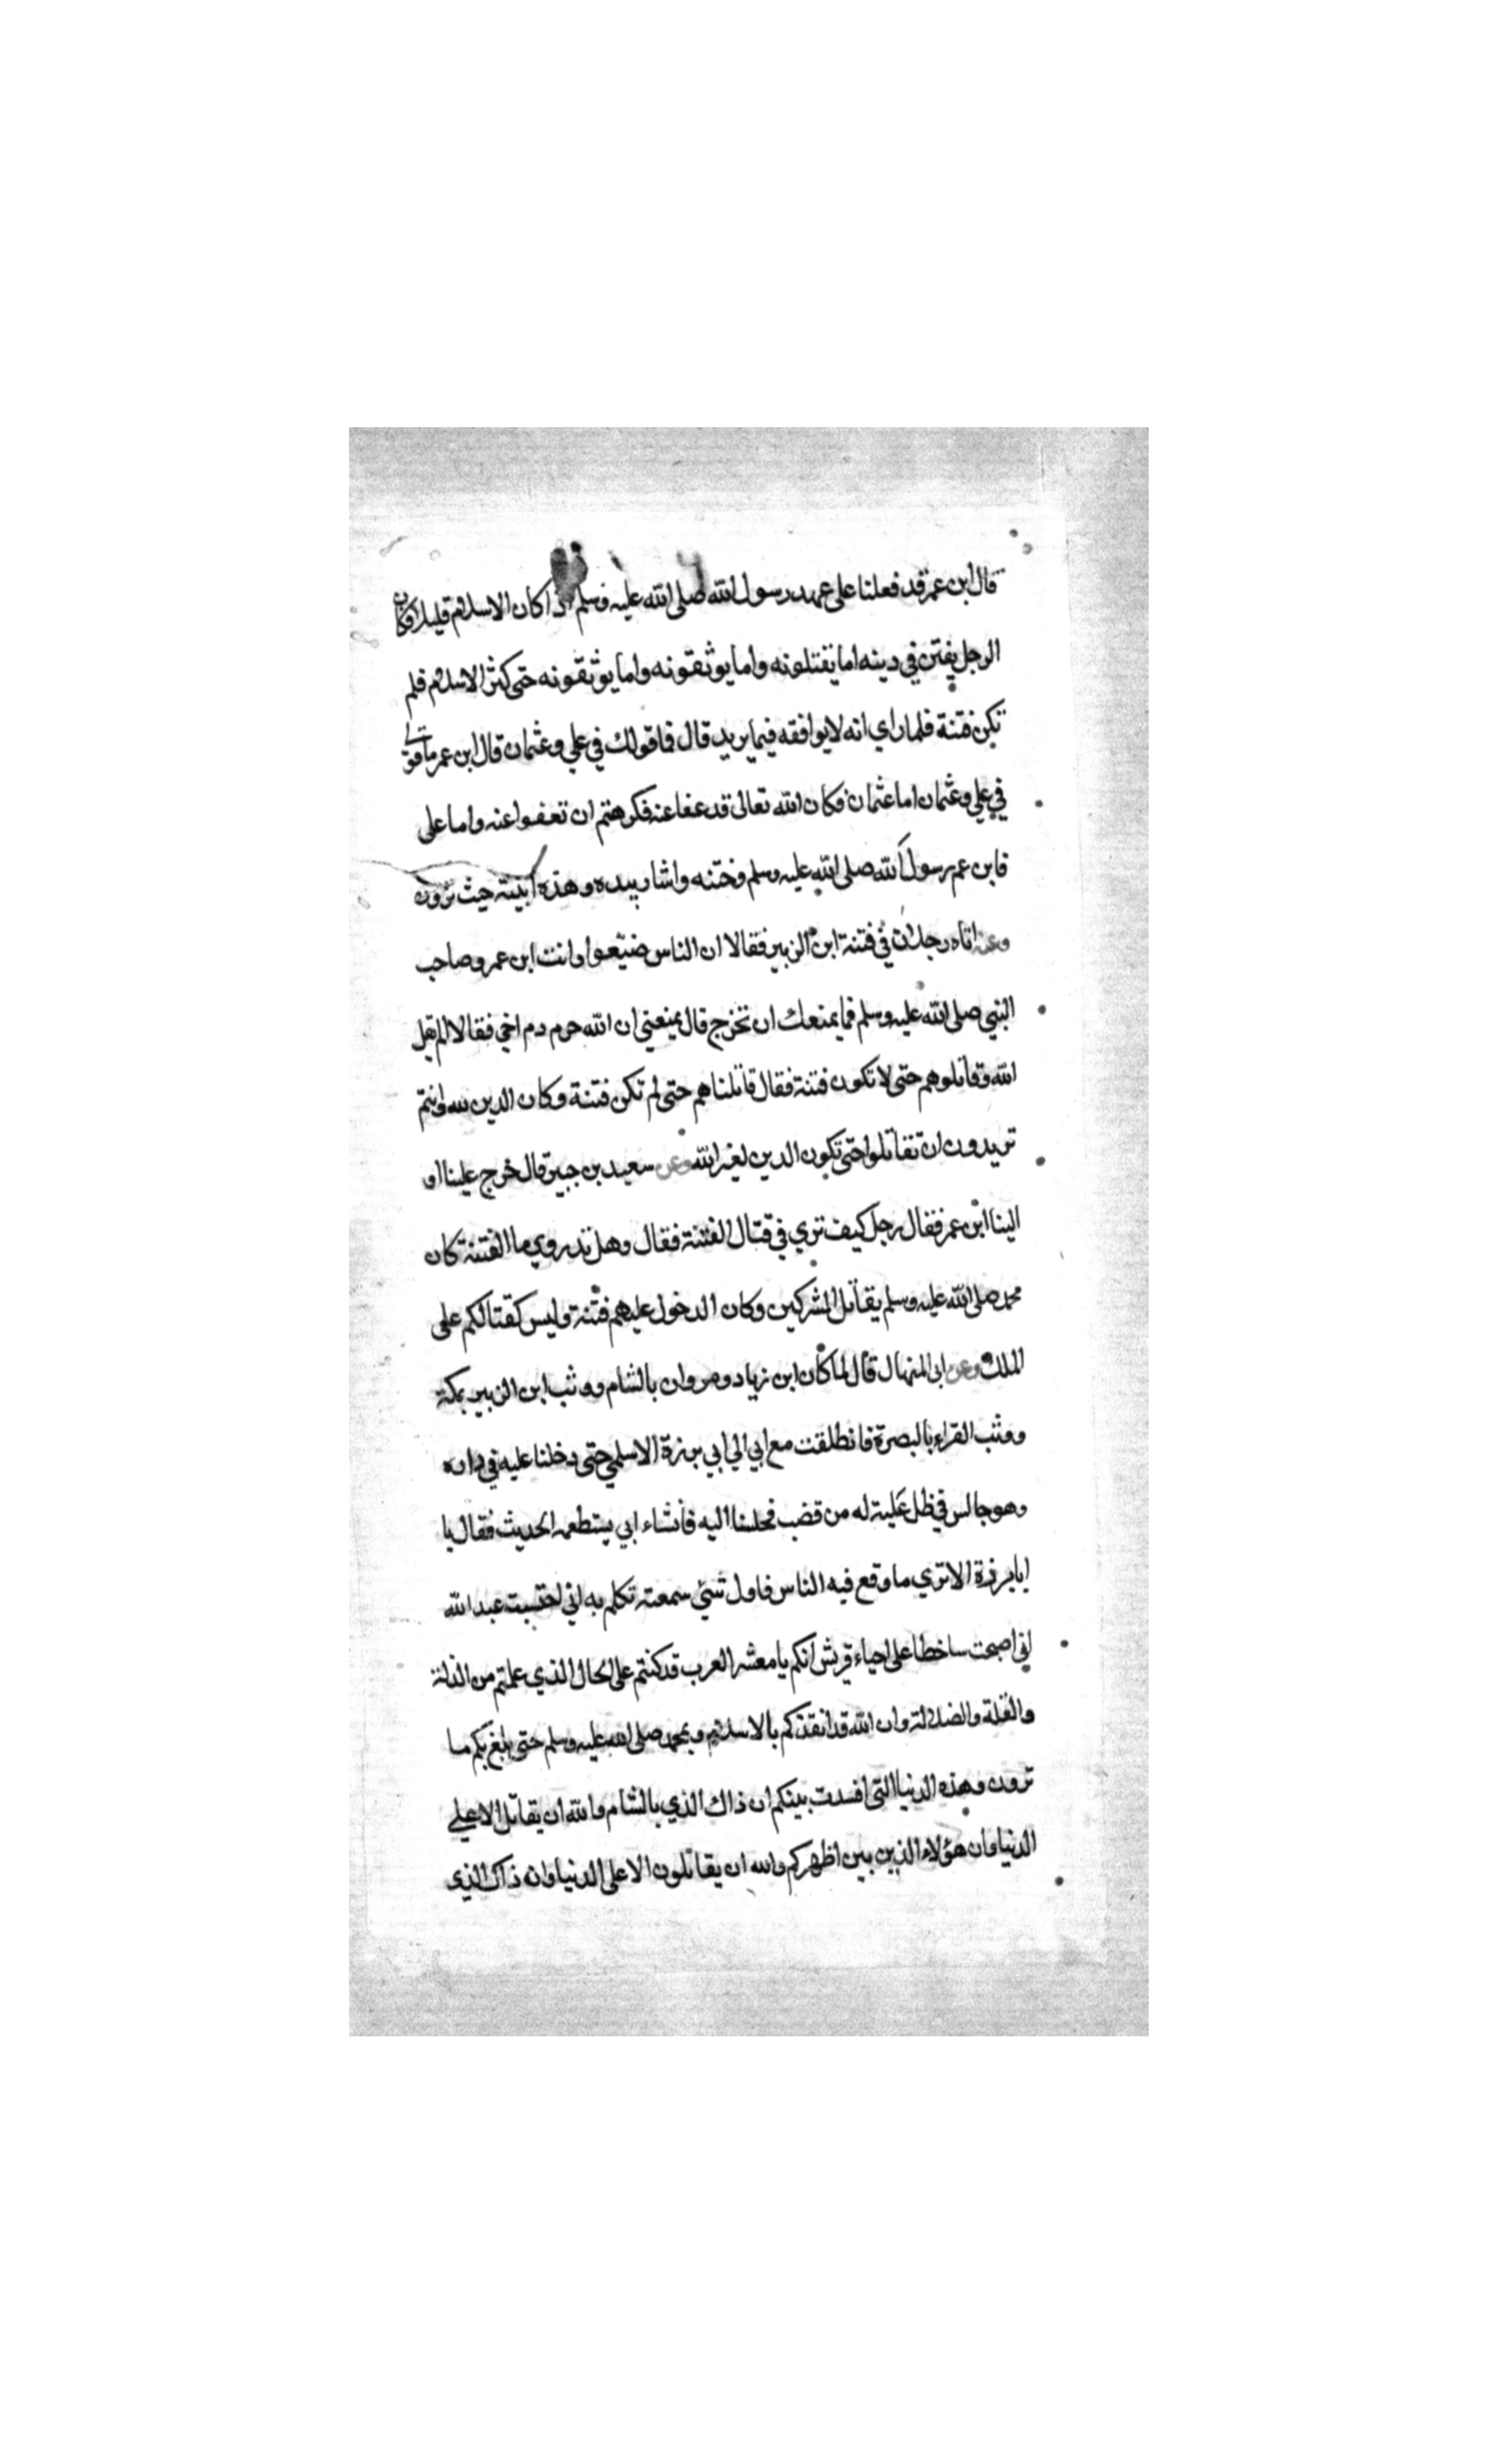 قال ابن عمر قد فعلنا على عهد رسول الله صلى الله عليه وسلم اذ كان الاسلام قليلا وكان
الرجل يفتن في دينه اما يقتلونه واما يوثقونه واما يوثقونه حتى كثر الاسلام فلم
تكن فتنة فلما راي انه لا يوافقه فيما يريد قال فما قولك في علي وعثمان قال ابن عمر ما قولي
في علي وعثمان اما عثمان فكان الله تعالى قد عفا عنه فكرهتم ان تعفوا عنه واما على
فابن عم رسول الله صلى الله عليه وسلم وختنه واشار بيده وهذه ابنته حيث ترون
وعنه اتاه رجلان في فتنة ابن الزبير فقالا ان الناس ضيّعوا وانت ابن عمر وصاحب
النبي صلى الله عليه وسلم فما يمنعك ان تخرج قال يمنعني ان الله حرم دم اخي فقالا الم يقل
الله وقاتلوهم حتى لا تكون فتنة فقال قاتلناهم حتى لم تكن فتنة وكان الدين لله وانتم
تريدون ان تقاتلوا حتى تكون الدين لغير الله وعن سعيد بن جبير قال خرج علينا او
الينا ابن عمر فقال رجل كيف تري في قتال الفتنة فقال وهل تدروي ما الفتنة كان
محمد صلى الله عليه وسلم يقاتل المشركين وكان الدخول عليهم فتنة وليس كقتالكم على
الملك وعن ابي المنهال قال لما كان ابن زياد ومروان بالشام ووثب ابن الزبير بمكة
ووثب القراء بالبصرة فانطلقت مع ابي الي ابي برزة الاسلمي حتى دخلنا عليه في داره
وهو جالس في ظل علية له من قضب فجلسنا اليه فانشاء ابي يستطعمه الحديث فقال يا
ابا برزة الا تري ما وقع فيه الناس فاول شيئ سمعته تكلم به اني احتسبت عبد الله
اني اصبحت ساخطا على احياء قريش انكم يا معشر العرب قد كنتم على الحال الذي علمتم من الذلة
والقلة والضلالة وان الله قد انقذكم بالاسلام وبمحمد صلى الله عليه وسلم حتى بلغ بكم ما
ترون وهذه الدنيا التي افسدت بينكم ان ذاك الذي بالشام والله ان يقاتل الا علي
الدنيا وان هؤلاء الذين بين اظهركم والله ان يقاتلون الا على الدنيا وان ذاك الذي